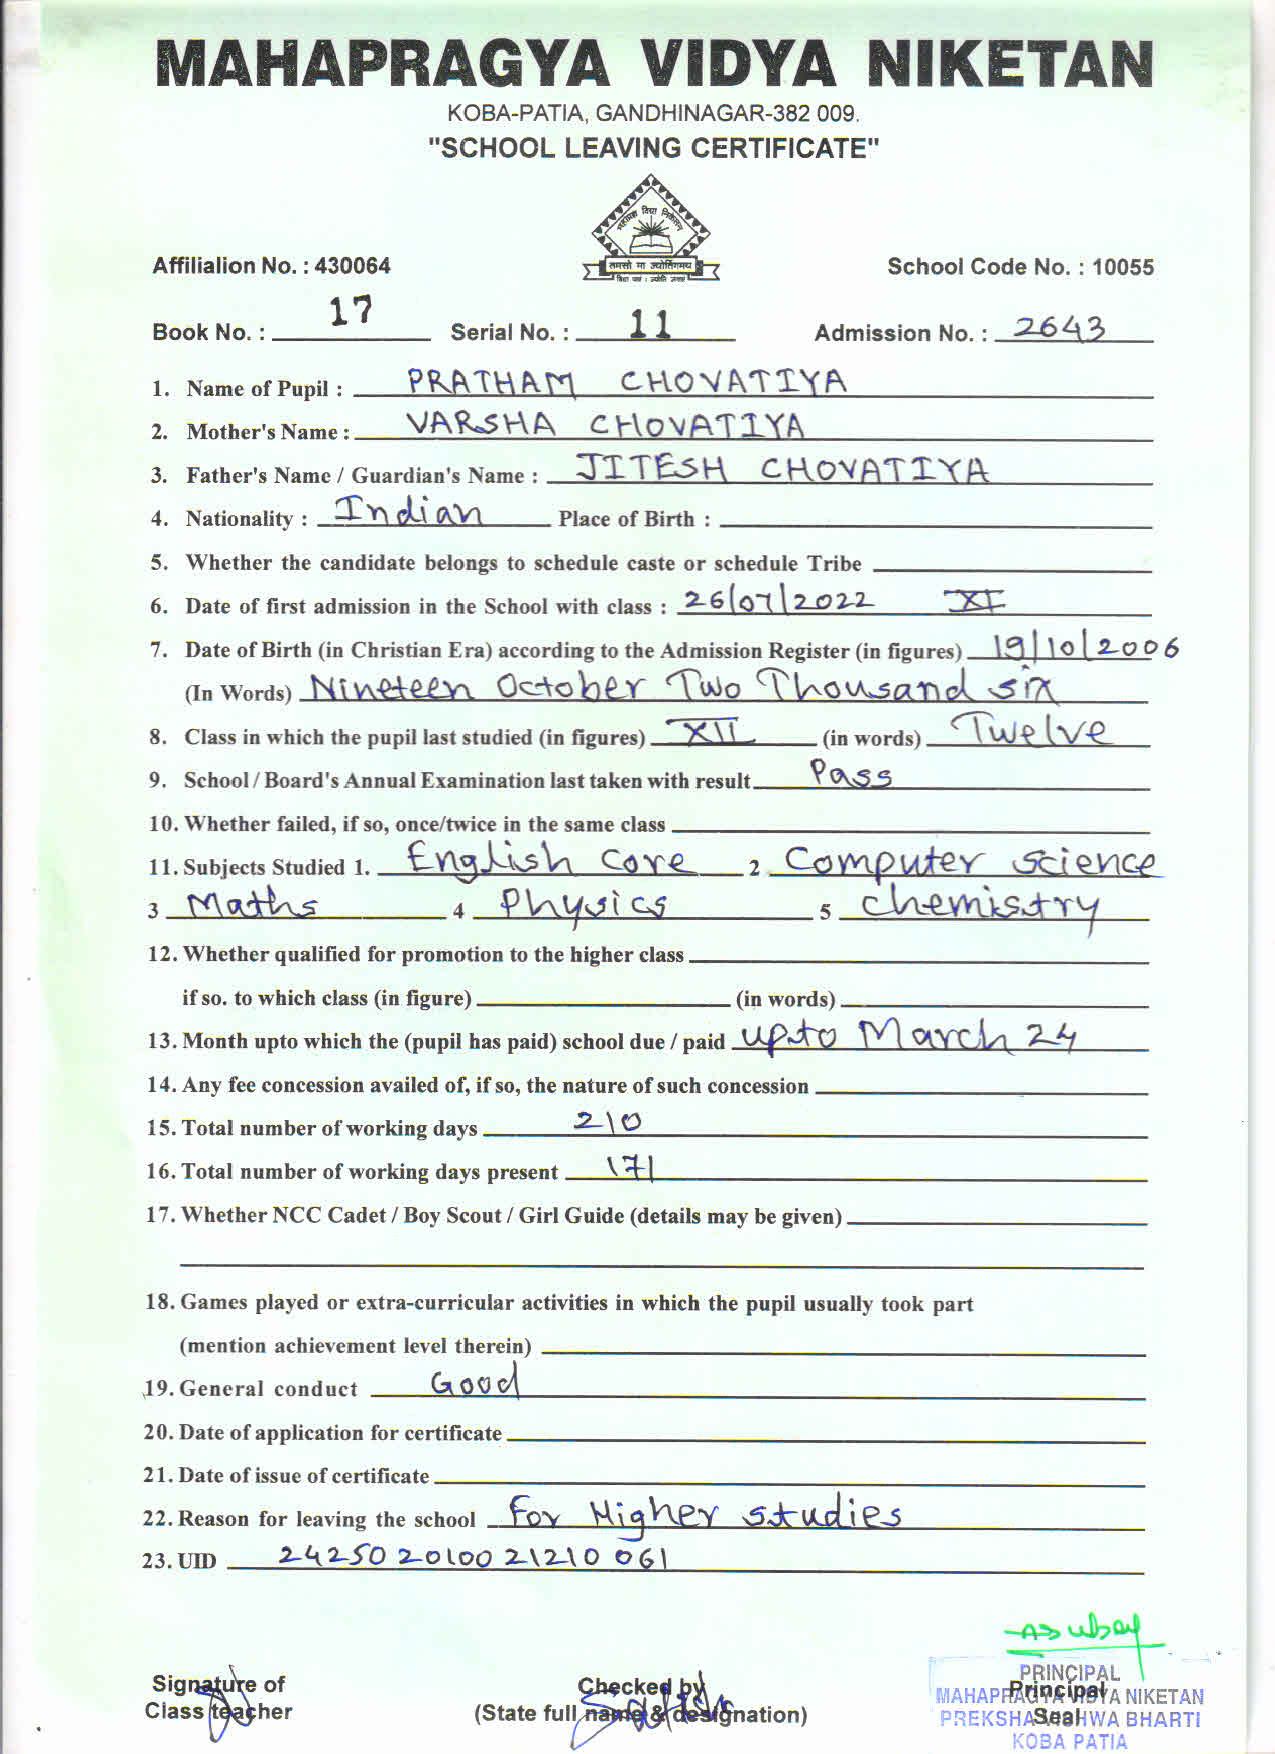 MAHAPRAGYA VIDYA NIKETAN
KOBA-PATIA, GANDHINAGAR-382 009.
"SCHOOL LEAVING CERTIFICATE"
महाप्रज्ञ विद्या निकेतन
तमसो मा ज्योतिर्गमय
Affilialion No. : 430064
School Code No. : 10055
Book No. : 17 Serial No. : 11 Admission No. : 2643
1. Name of Pupil : PRATHAM CHOVATIYA
2. Mother's Name : VARSHA CHOVATIYA
3. Father's Name / Guardian's Name : JITESH CHOVATIYA
4. Nationality : Indian Place of Birth :
5. Whether the candidate belongs to schedule caste or schedule Tribe
6. Date of first admission in the School with class : 26/07/2022 XI
7. Date of Birth (in Christian Era) according to the Admission Register (in figures) 19/10/2006
(In Words) Nineteen October Two Thousand six
8. Class in which the pupil last studied (in figures) XII (in words) Twelve
9. School / Board's Annual Examination last taken with result Pass
10. Whether failed, if so, once/twice in the same class
11. Subjects Studied 1. English core 2 Computer science
3 Maths 4 Physics 5 chemistry
12. Whether qualified for promotion to the higher class
if so. to which class (in figure) (in words)
13. Month upto which the (pupil has paid) school due / paid upto March 24
14. Any fee concession availed of, if so, the nature of such concession
15. Total number of working days 210
16. Total number of working days present 171
17. Whether NCC Cadet / Boy Scout / Girl Guide (details may be given)
18. Games played or extra-curricular activities in which the pupil usually took part
(mention achievement level therein)
19. General conduct Good
20. Date of application for certificate
21. Date of issue of certificate
22. Reason for leaving the school For Higher studies
23. UID 24250 20100 21210 061
Signature of
Class teacher
Checked by
(State full name & designation)
PRINCIPAL
Principal
MAHAPRAGYA VIDYA NIKETAN
Seal
PREKSHA VISHWA BHARTI
KOBA PATIA